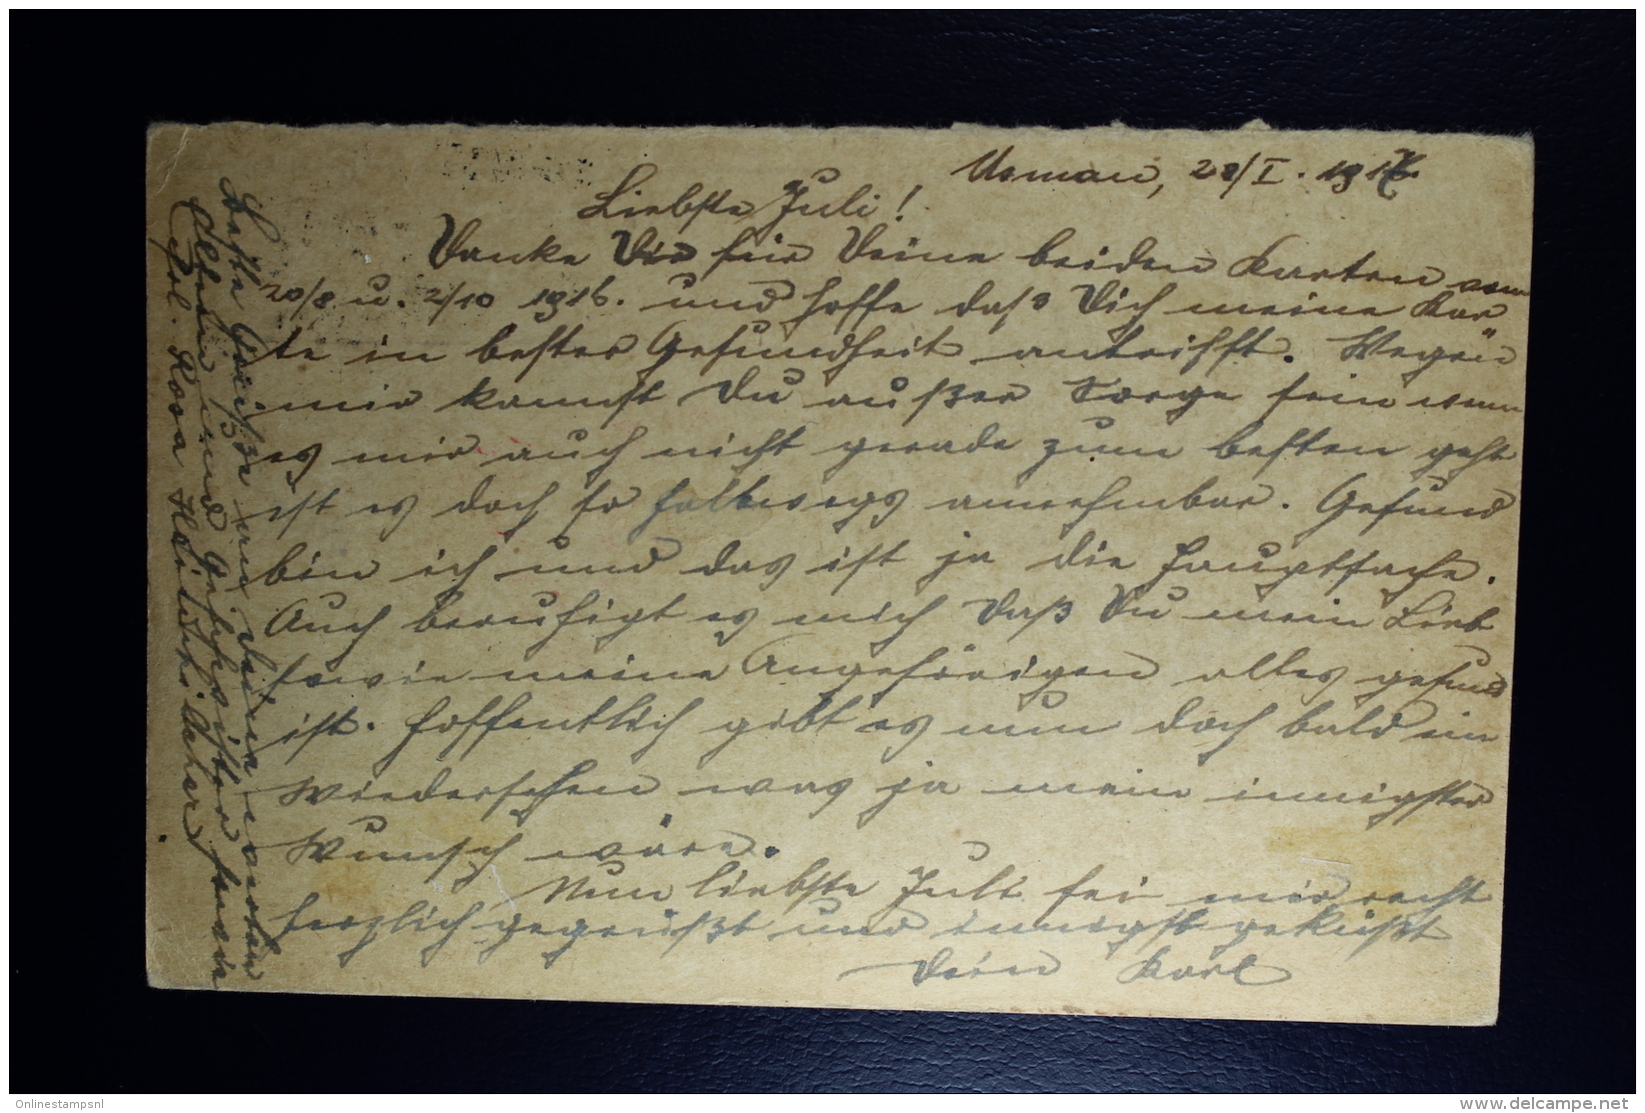 Usman, 28/I. 1917.
Liebste Juli!
Danke Dir für Deine beiden Karten vom
20/8 u. 2/10 1916. und hoffe daß Dich meine Kar
te in bester Gesundheit antrifft. Wegen
mir kannst Du außer Sorge sein wenn
es mir auch nicht gerade zum besten geht
ist es doch so halbwegs annehmbar. Gesund
bin ich und das ist ja die Hauptsache.
Auch beruhigt es mich daß Du mein Lieb
sowie meine Angehörigen alles gesund
ist. Hoffentlich gibt es nun doch bald ein
Wiedersehen was ja mein innigster
Wunsch wäre.
Nun liebste Juli sei mir recht
herzlich gegrüßt und innigst geküßt
Dein Karl
Beste Grüße an Deine werten
Eltern und Geschwister sowie
Frl. Rosa
Onlinestampsnl
delcampe.net